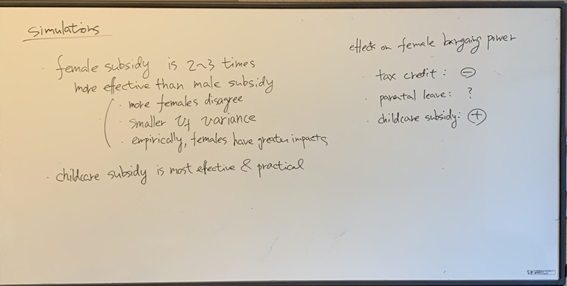 Simulations
· female subsidy is 2~3 times
more effective than male subsidy
· more females disagree
· smaller v_f variance
· empirically, females have greater impacts
· childcare subsidy is most efective & practical
effects on female bargaing power
· tax credit : ⊖
· parental leave : ?
· childcare subsidy : ⊕